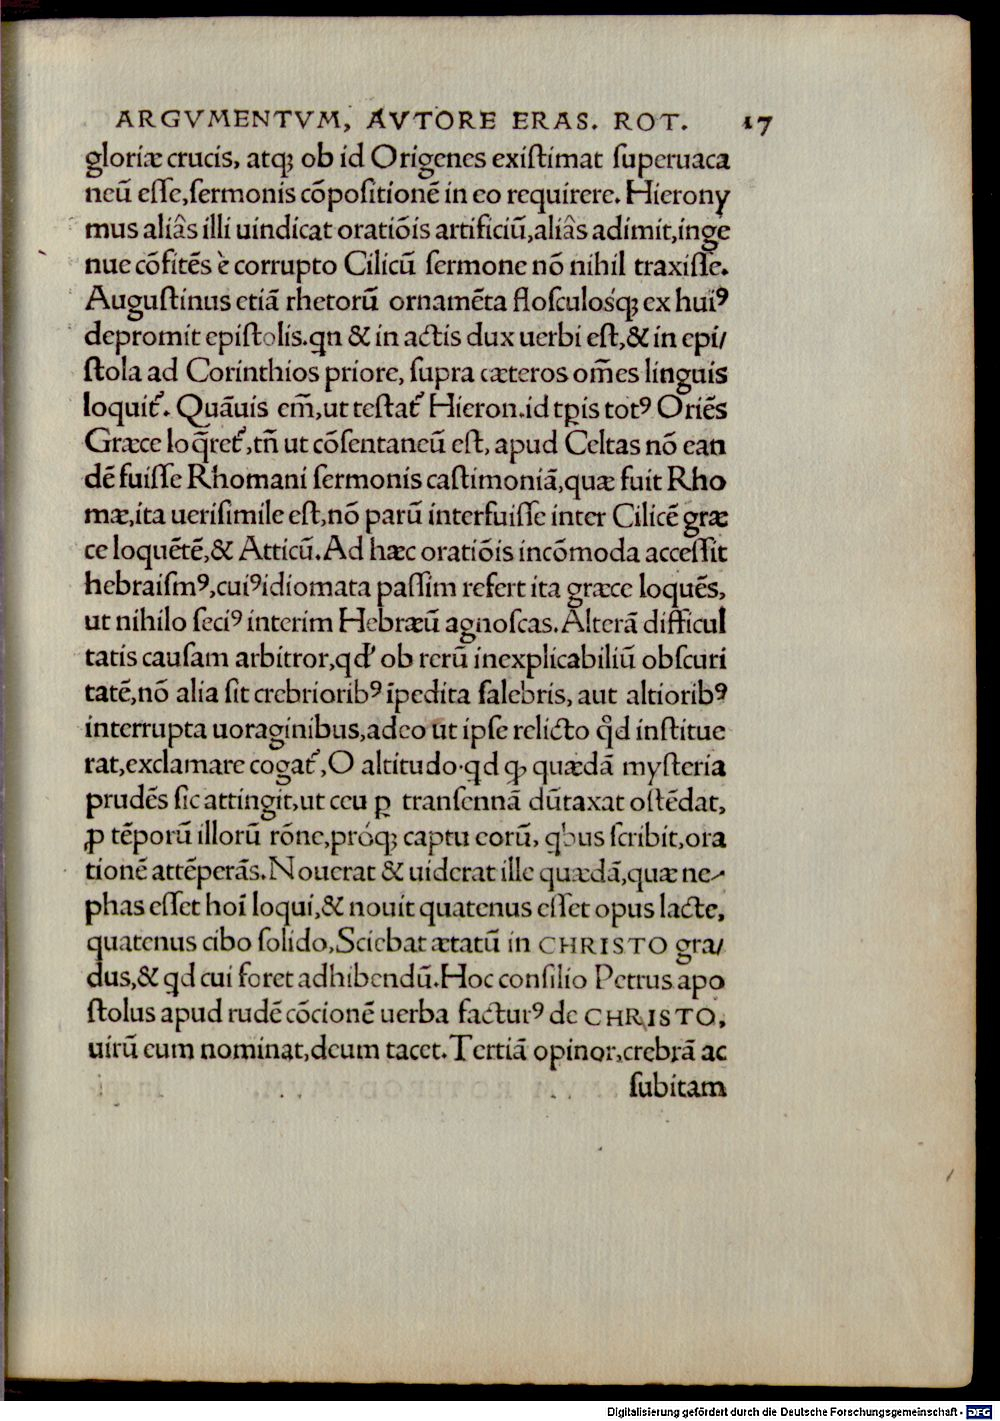 ARGVMENTVM, AVTORE ERAS. ROT. 17
gloriæ crucis, atqꝫ ob id Origenes exiſtimat ſuperuaca
neū eſſe,ſermonis cōpoſitionē in eo requirere. Hierony
mus aliâs illi uindicat oratiōis artificiū,aliâs adimit,inge
nue cōfitēs è corrupto Cilicū ſermone nō nihil traxiſſe.
Auguſtinus etiā rhetorū ornamēta floſculosqꝫ ex huiꝰ
depromit epiſtolis.qn & in actis dux uerbi eſt,& in epi/
ſtola ad Corinthios priore, ſupra cæteros om̄es linguis
loquit᷑. Quāuis em̄,ut teſtat᷑ Hieron.id tꝑis totꝰ Oriēs
Græce loq̄ret᷑,tn̄ ut cōſentaneū eſt, apud Celtas nō ean
dē fuiſſe Rhomani ſermonis caſtimoniā,quæ fuit Rho
mæ,ita ueriſimile eſt,nō parū interfuiſſe inter Cilicē græ
ce loquētē,& Atticū.Ad hæc oratiōis incōmoda acceſſit
hebraiſmꝰ,cuiꝰidiomata paſſim refert ita græce loquēs,
ut nihilo ſeciꝰ interim Hebræū agnoſcas.Alterā difficul
tatis cauſam arbitror,qd' ob rerū inexplicabiliū obſcuri
tatē,nō alia ſit crebrioribꝰ īpedita ſalebris, aut altioribꝰ
interrupta uoraginibus,adeo ut ipſe relicto qd̓ inſtitue
rat,exclamare cogat᷑,O altitudo·qd qꝫ quædā myſteria
prudēs ſic attingit,ut ceu ꝑ tranſennā dūtaxat oſtēdat,
ꝓ tēporū illorū rōne,próqꝫ captu eorū, qbus ſcribit,ora
tionē attēperās.Nouerat & uiderat ille quædā,quæ ne-
phas eſſet hoī loqui,& nouit quatenus eſſet opus lacte,
quatenus cibo ſolido,Sciebat ætatū in CHRISTO gra/
dus,& qd cui foret adhibendū.Hoc conſilio Petrus apo
ſtolus apud rudē cōcionē uerba facturꝰ de CHRISTO,
uirū eum nominat,deum tacet.Tertiā opinor,crebrā ac
ſubitam
Digitalisierung gefördert durch die Deutsche Forschungsgemeinschaft - DFG